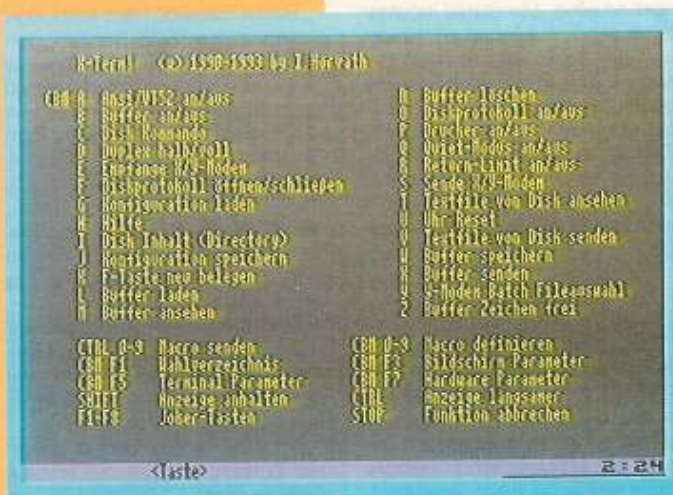 X-Term! (c) 1990-1993 by I.Horvath
CBM A Ansi/VT52 an/aus
B Buffer an/aus
C Disk Kommando
D Duplex halb/voll
E Empfange X/Y-Modem
F Diskprotokoll öffnen/schließen
G Konfiguration laden
H Hilfe
I Disk Inhalt (Directory)
J Konfiguration speichern
K F-Taste neu belegen
L Buffer laden
M Buffer ansehen
N Buffer löschen
O Diskprotokoll an/aus
P Drucker an/aus
Q Quiet-Modus an/aus
R Return-Limit an/aus
S Sende X/Y-Modem
T Textfile von Disk ansehen
U Uhr Reset
V Textfile von Disk senden
W Buffer speichern
X Buffer senden
Y Y-Modem Batch Fileauswahl
Z Buffer Zeichen frei
CTRL 0-9 Macro senden
CBM F1 Wahlverzeichnis
CBM F5 Terminal Parameter
SHIFT Anzeige anhalten
F1-F8 Joker-Tasten
CBM 0-9 Macro definieren
CBM F3 Bildschirm Parameter
CBM F7 Hardware Parameter
CTRL Anzeige langsamer
STOP Funktion abbrechen
<Taste>
2:24